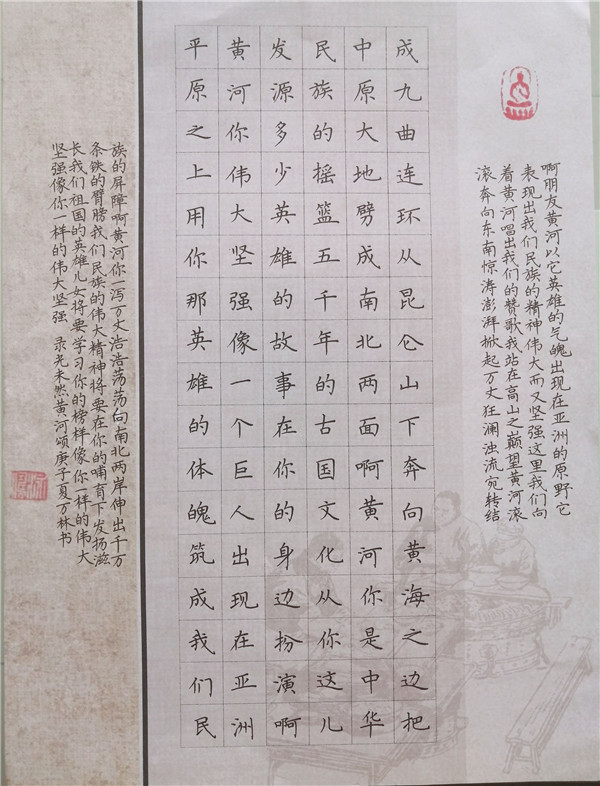 啊朋友黄河以它英雄的气魄出现在亚洲的原野它
表现出我们民族的精神伟大而又坚强这里我们向
着黄河唱出我们的赞歌我站在高山之巅望黄河滚
滚奔向东南惊涛澎湃掀起万丈狂澜浊流宛转结
成九曲连环从昆仑山下奔向黄海之边把
中原大地劈成南北两面啊黄河你是中华
民族的摇篮五千年的古国文化从你这儿
发源多少英雄的故事在你的身边扮演啊
黄河你伟大坚强像一个巨人出现在亚洲
平原之上用你那英雄的体魄筑成我们民
族的屏障啊黄河你一泻万丈浩浩荡荡向南北两岸伸出千万
条铁的臂膀我们民族的伟大精神将要在你的哺育下发扬滋
长我们祖国的英雄儿女将要学习你的榜样像你一样的伟大
坚强像你一样的伟大坚强 录光未然黄河颂庚子夏万林书